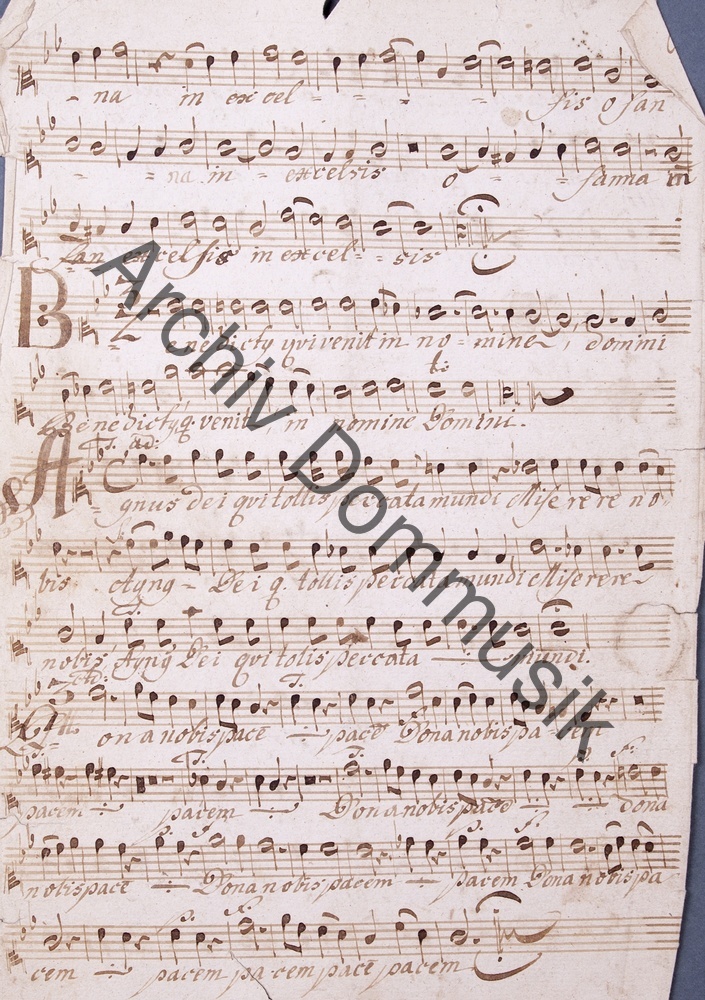 - na in excel - - - - sis o san
- - - na in - excelsis o - - sanna in
san excelsis in excel - - sis
Benedictq qvi venit in no - mine, domini
Benedictq q. venit, in nomine Domini.
T. ad:
A - gnus dei qvi tollis peccata mundi Miserere no -
bis Agnq - Dei q. tollis peccata mundi Miserere
T.
nobis, Agnq Dei qvi tolis peccata mundi.
T.
Dona nobis pacē pacē Dona nobis pa - cem
T. T. p. F.
pacem pacem Dona nobis pacē dona
p. F. p. F.
nobis pacē Dona nobis pacem pacem Dona nobis pa
p. F.
cem pacem pacem pacē pacem
Archiv Dommusik